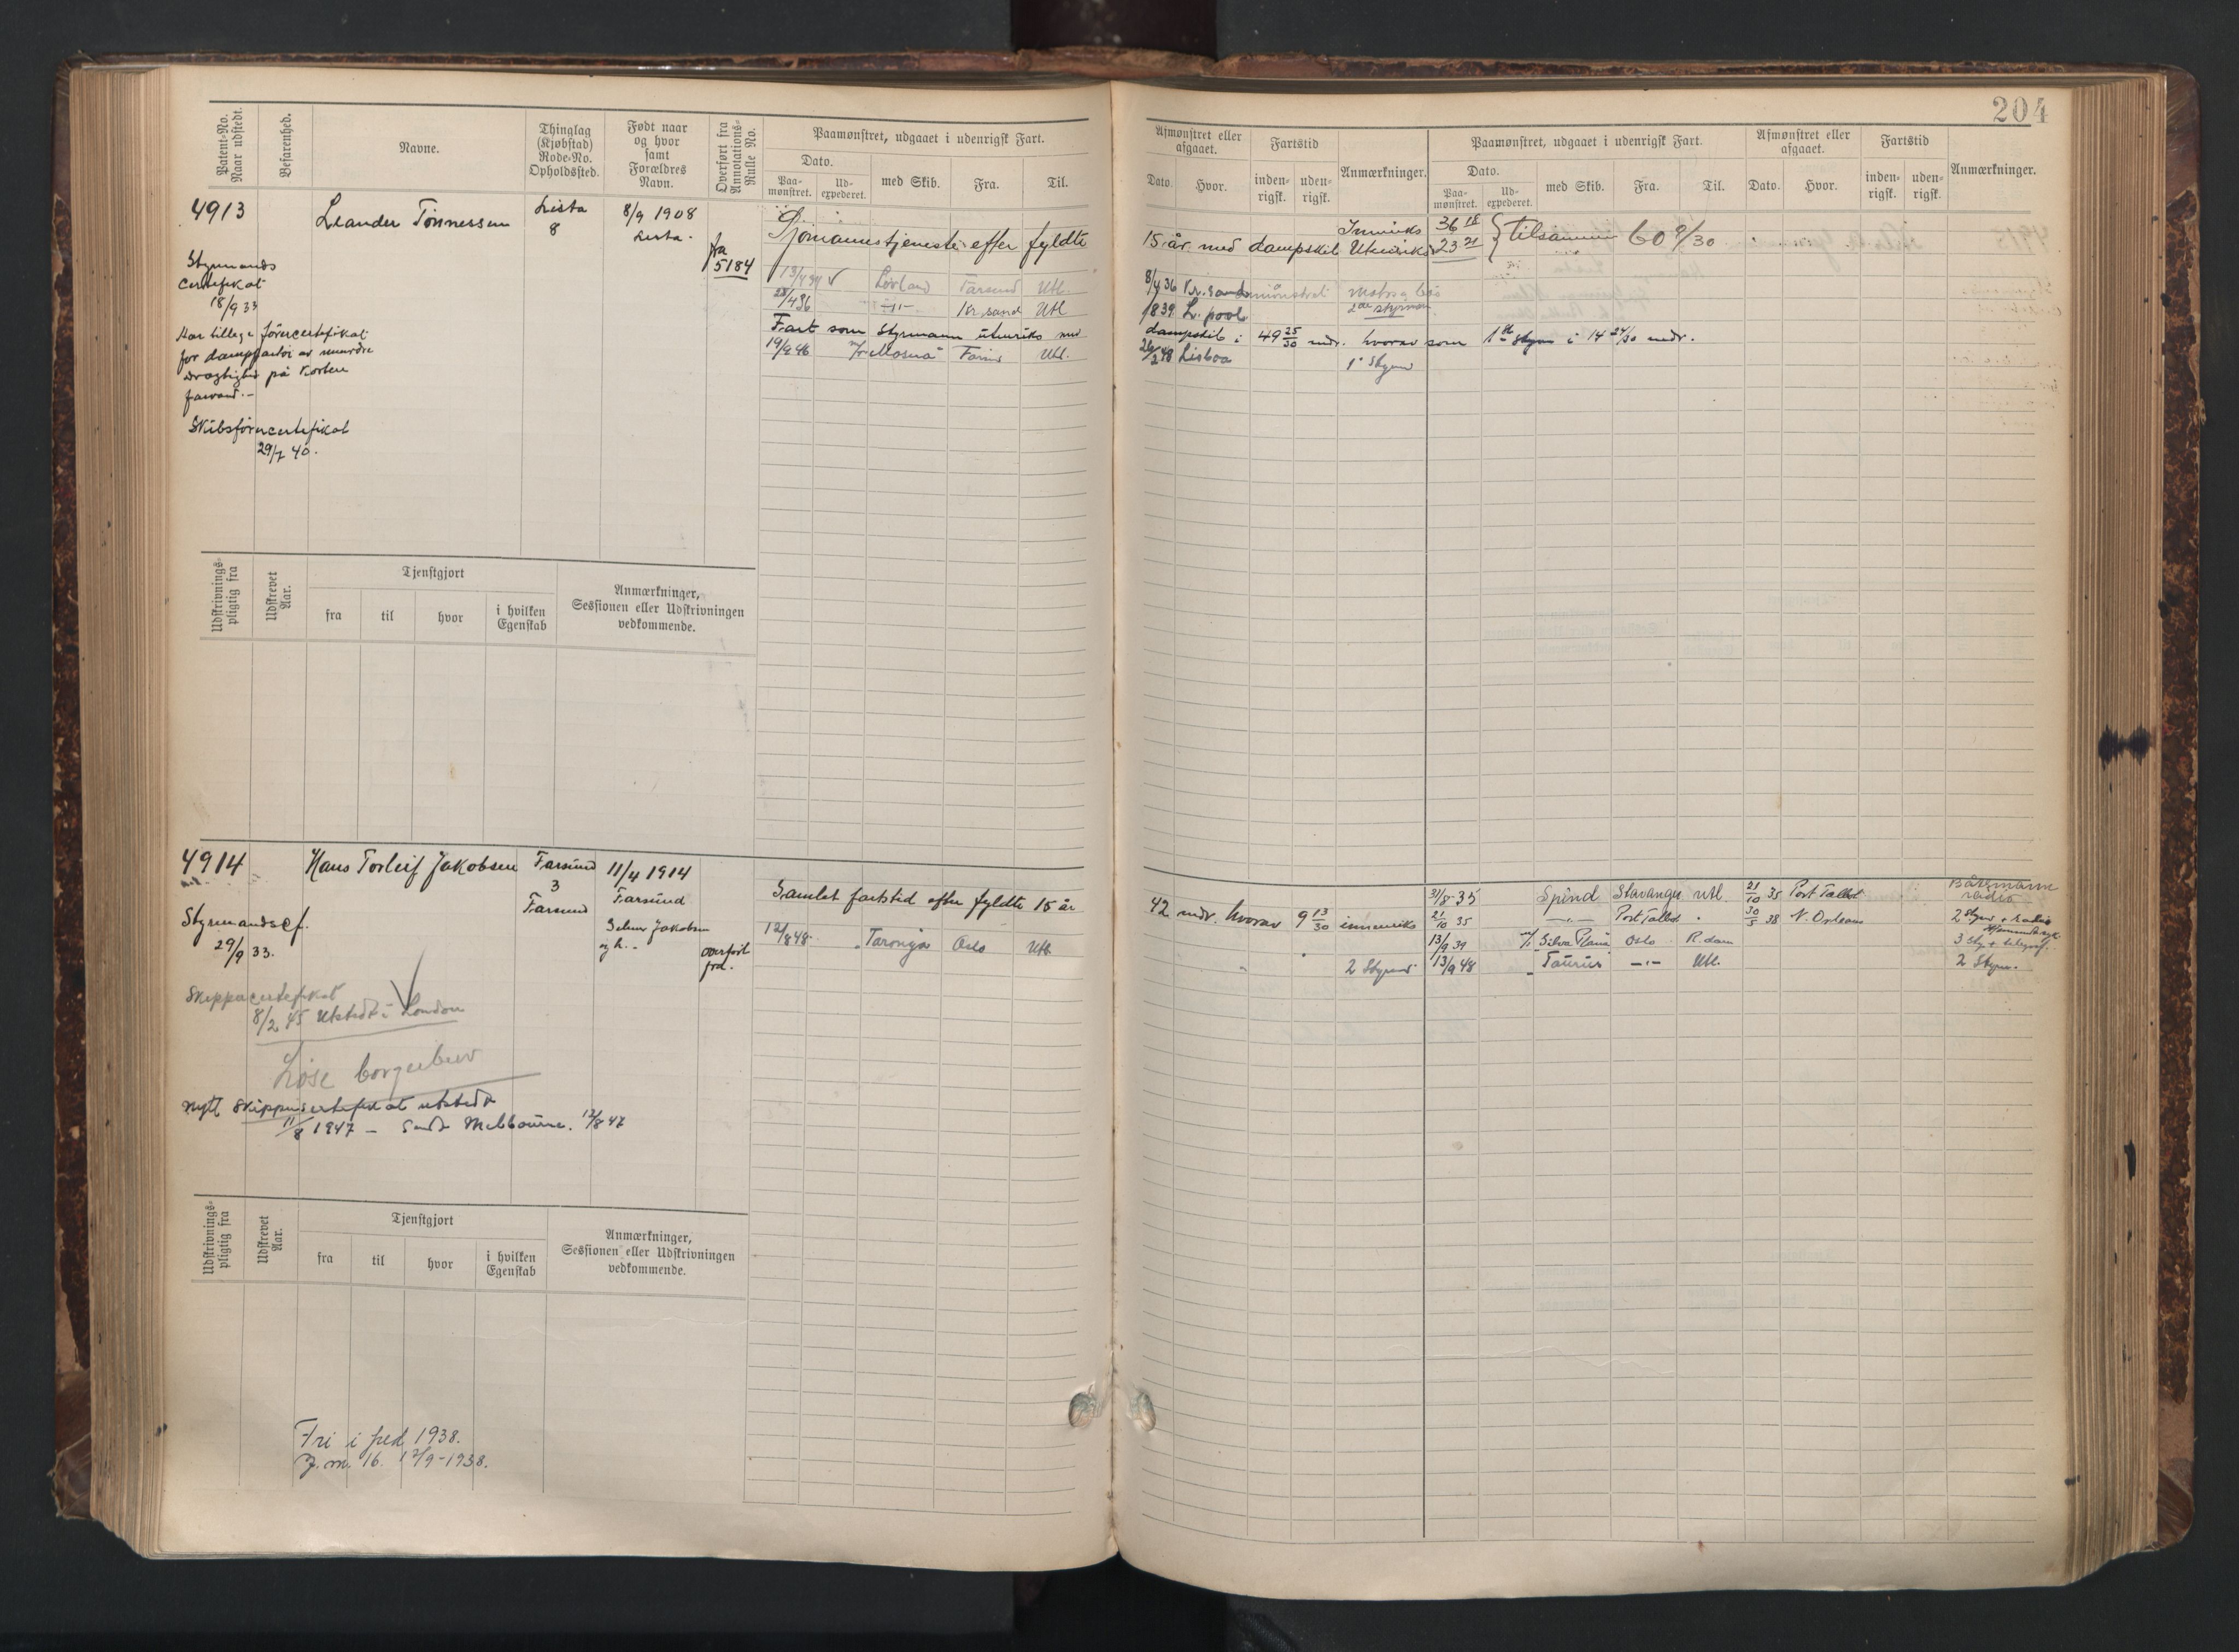 204
Patent-No.
Naar udstedt.
Befarenhed.
Navne.
Thinglag
(Kjøbstad)
Rode-No.
Opholdssted.
Født naar
og hvor
samt
Forældres
Navn.
Overført fra
Annotations-
Rulle No.
Paamønstret, udgaaet i udenrigsk Fart.
Dato.
Paa-
mønstret.
Ud-
expederet.
med Skib.
Fra.
Til.
Afmønstret eller
afgaaet.
Dato.
Hvor.
Fartstid
inden-
rigsk.
uden-
rigsk.
Anmærkninger.
Paamønstret, udgaaet i udenrigsk Fart.
Dato.
Paa-
mønstret.
Ud-
expederet.
med Skib.
Fra.
Til.
Afmønstret eller
afgaaet.
Dato.
Hvor.
Fartstid
inden-
rigsk.
uden-
rigsk.
Anmærkninger.
4913
Leander Tönnessen
Lista
8
8/9 1908
Lista.
fra
5184
Styrmands
certifikat
18/9 33
Har tillege förercertifikat
for dampfartöi av mindre
drægtighet på kortere
farvand.-
Skibsförercertifikat
29/7 40.
Sjömannstjeneste efter fyldte
15 år med dampskib
Innriks 36 18
Utenriks 23 21
tilsammen 60 9/30
13/4 34 Lovland Farsund Utl.
8/4 36 Kr.sand avmönstret matros
28/4 36 -"- Kr sand Utl
1839 L. pool 2den styrman
Fart som Styrmann utenriks med
dampskib i 49 25/30 mdr. hvorav som 1ste styrm i 14 24/30 mdr.
19/9 46 "Mosna" Utl.
26/2 48 Lisboa 1' Styrm
Udskrivnings-
pligtig fra
Udskrevet
Aar.
Tjenstgjort
fra
til
hvor
i hvilken
Egenskab
Anmærkninger,
Sessionen eller Udskrivningen
vedkommende.
4914
Hans Torleif Jakobsen
Farsund
3
Farsund
11/4 1914
Farsund
Jakobsen
og h. -
overført
fra.
Styrmandscf.
29/9 33.
Skippercertefikat
8/2 45 Utstedt i London
Löse borgerbrev
Nytt Skippercertefikat utstedt
11/8 1947 - Sendt Melbourne. 12/8 47
Samlet fartstid efter fyldte 15 år
42 mdr. hvorav 9 13/30 innenriks
12/8 48. "Taronga Oslo Utl.
2 Styrmd
31/8-35 Spind Stavanger utl. 21/10 35 Port Talbot Båtsmann
radio
21/10 35 -"- Port Talbot " 30/5 38 N. Orleans 2 Styrm + radio
13/9 39 m/s Silva Plana Oslo R.dam 3 Sty + telegraf.
13/9 48 "Taurus -"- Utl. 2 Styrm.
Udskrivnings-
pligtig fra
Udskrevet
Aar.
Tjenstgjort
fra
til
hvor
i hvilken
Egenskab
Anmærkninger,
Sessionen eller Udskrivningen
vedkommende.
Fri i fred 1938.
J.m. 16. 12/9-1938.